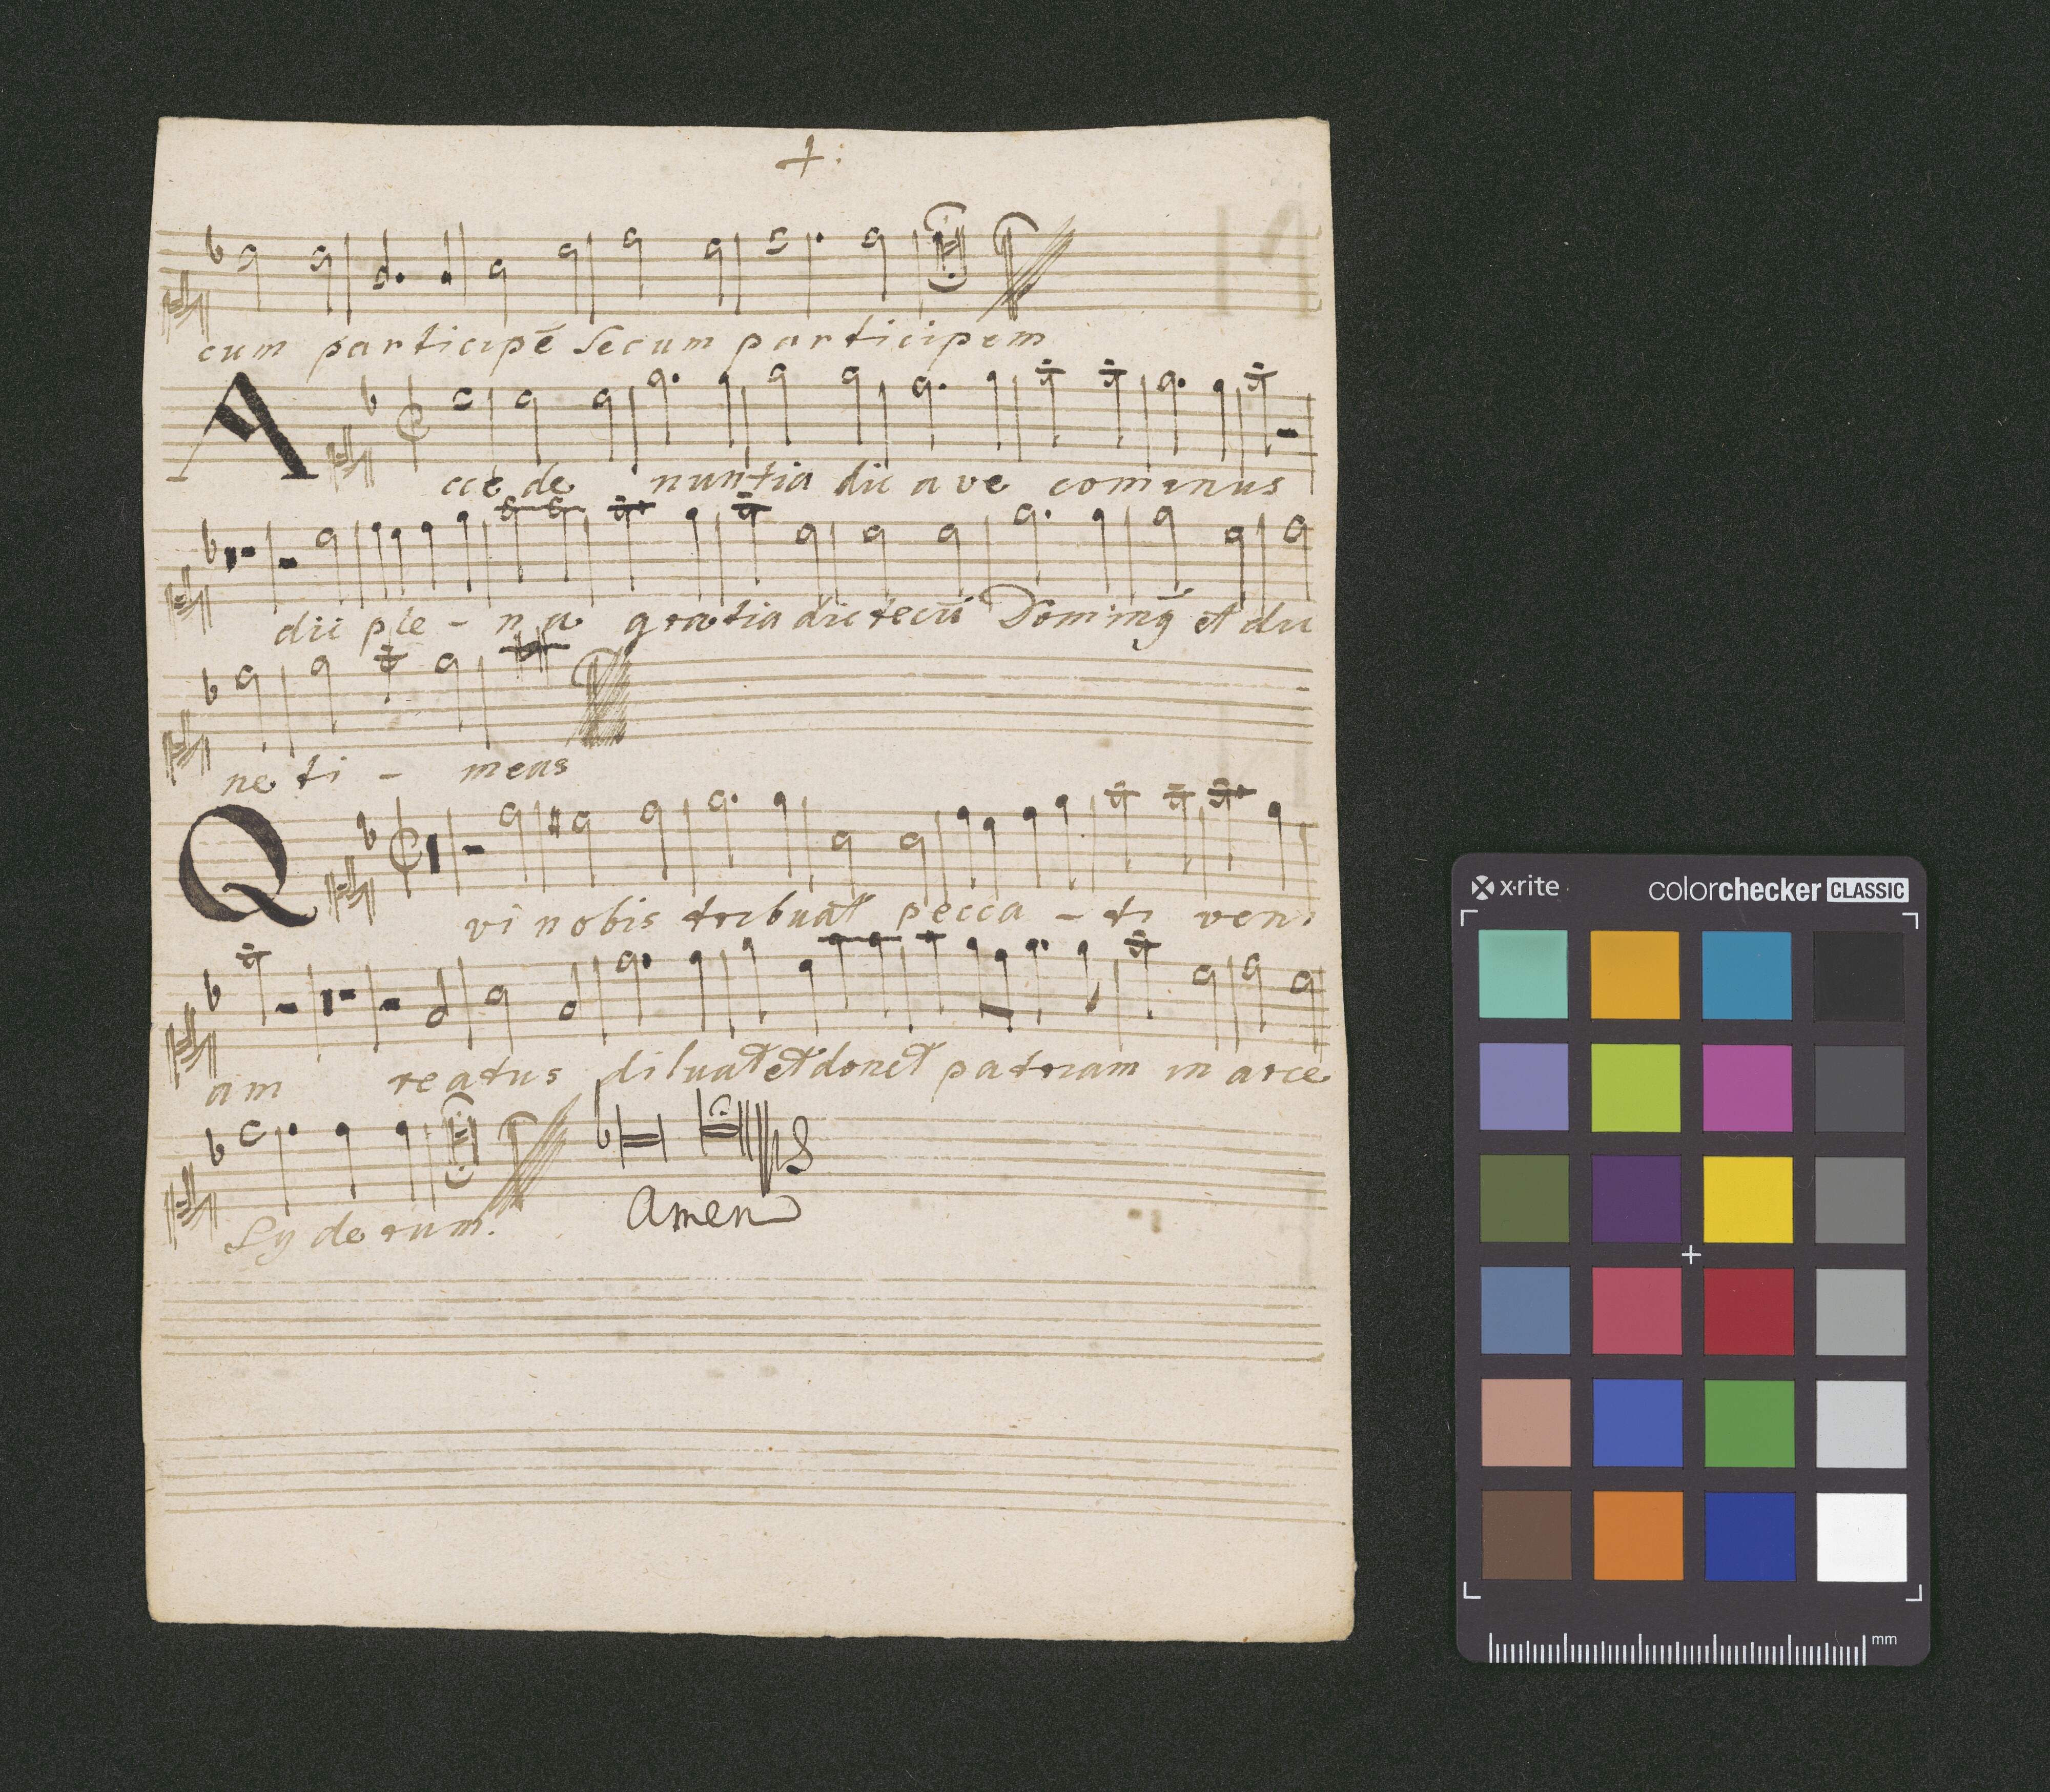 +:
cum participē secum participem
A
cce de nuntia dic ave cominus
dic ple - na gratia dic tecū Doming et dic
ne ti - meas
Q
vi nobis tribuat pecca - ti veni
am reatus diluat et donet patriam in arce
Syderum. Amen
x·rite colorchecker CLASSIC
mm